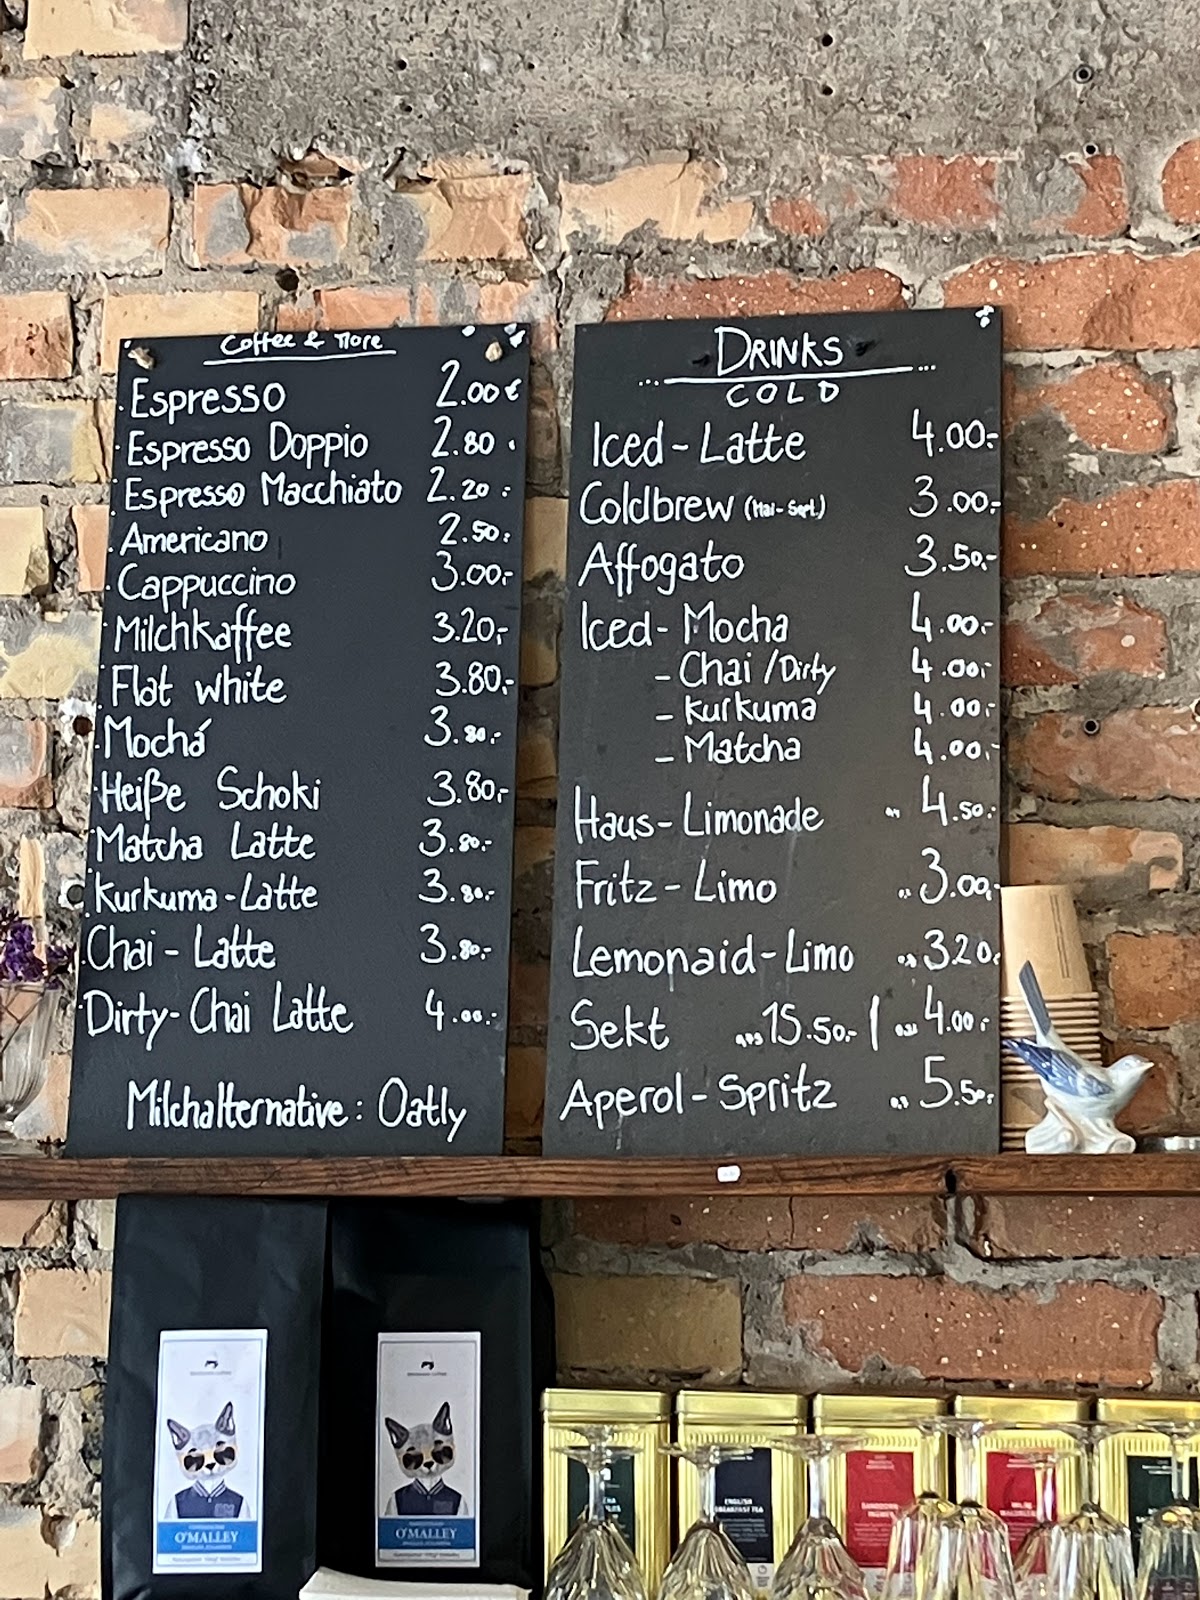 Coffee & More
Espresso 2.00€
Espresso Doppio 2.80
Espresso Macchiato 2.20.-
Americano 2.50.-
Cappuccino 3.00.-
Milchkaffee 3.20,-
Flat white 3.80.-
Mochá 3.80.-
Heiße Schoki 3.80,-
Matcha Latte 3.80.-
Kurkuma-Latte 3.80.-
Chai-Latte 3.80.-
Dirty-Chai Latte 4.00.-
Milchalternative: Oatly
DRINKS
COLD
Iced-Latte 4.00.-
Coldbrew (Mai-Sept.) 3.00.-
Affogato 3.50.-
Iced- Mocha 4.00.-
- Chai /Dirty 4.00.-
- Kurkuma 4.00.-
- Matcha 4.00.-
Haus-Limonade 4.50.-
Fritz-Limo 3.00,-
Lemonaid-Limo 3.20.
Sekt 15.50.- | 4.00.-
Aperol-Spritz 5.50.-
O'MALLEY
O'MALLEY
ENGLISH
BREAKFAST TEA